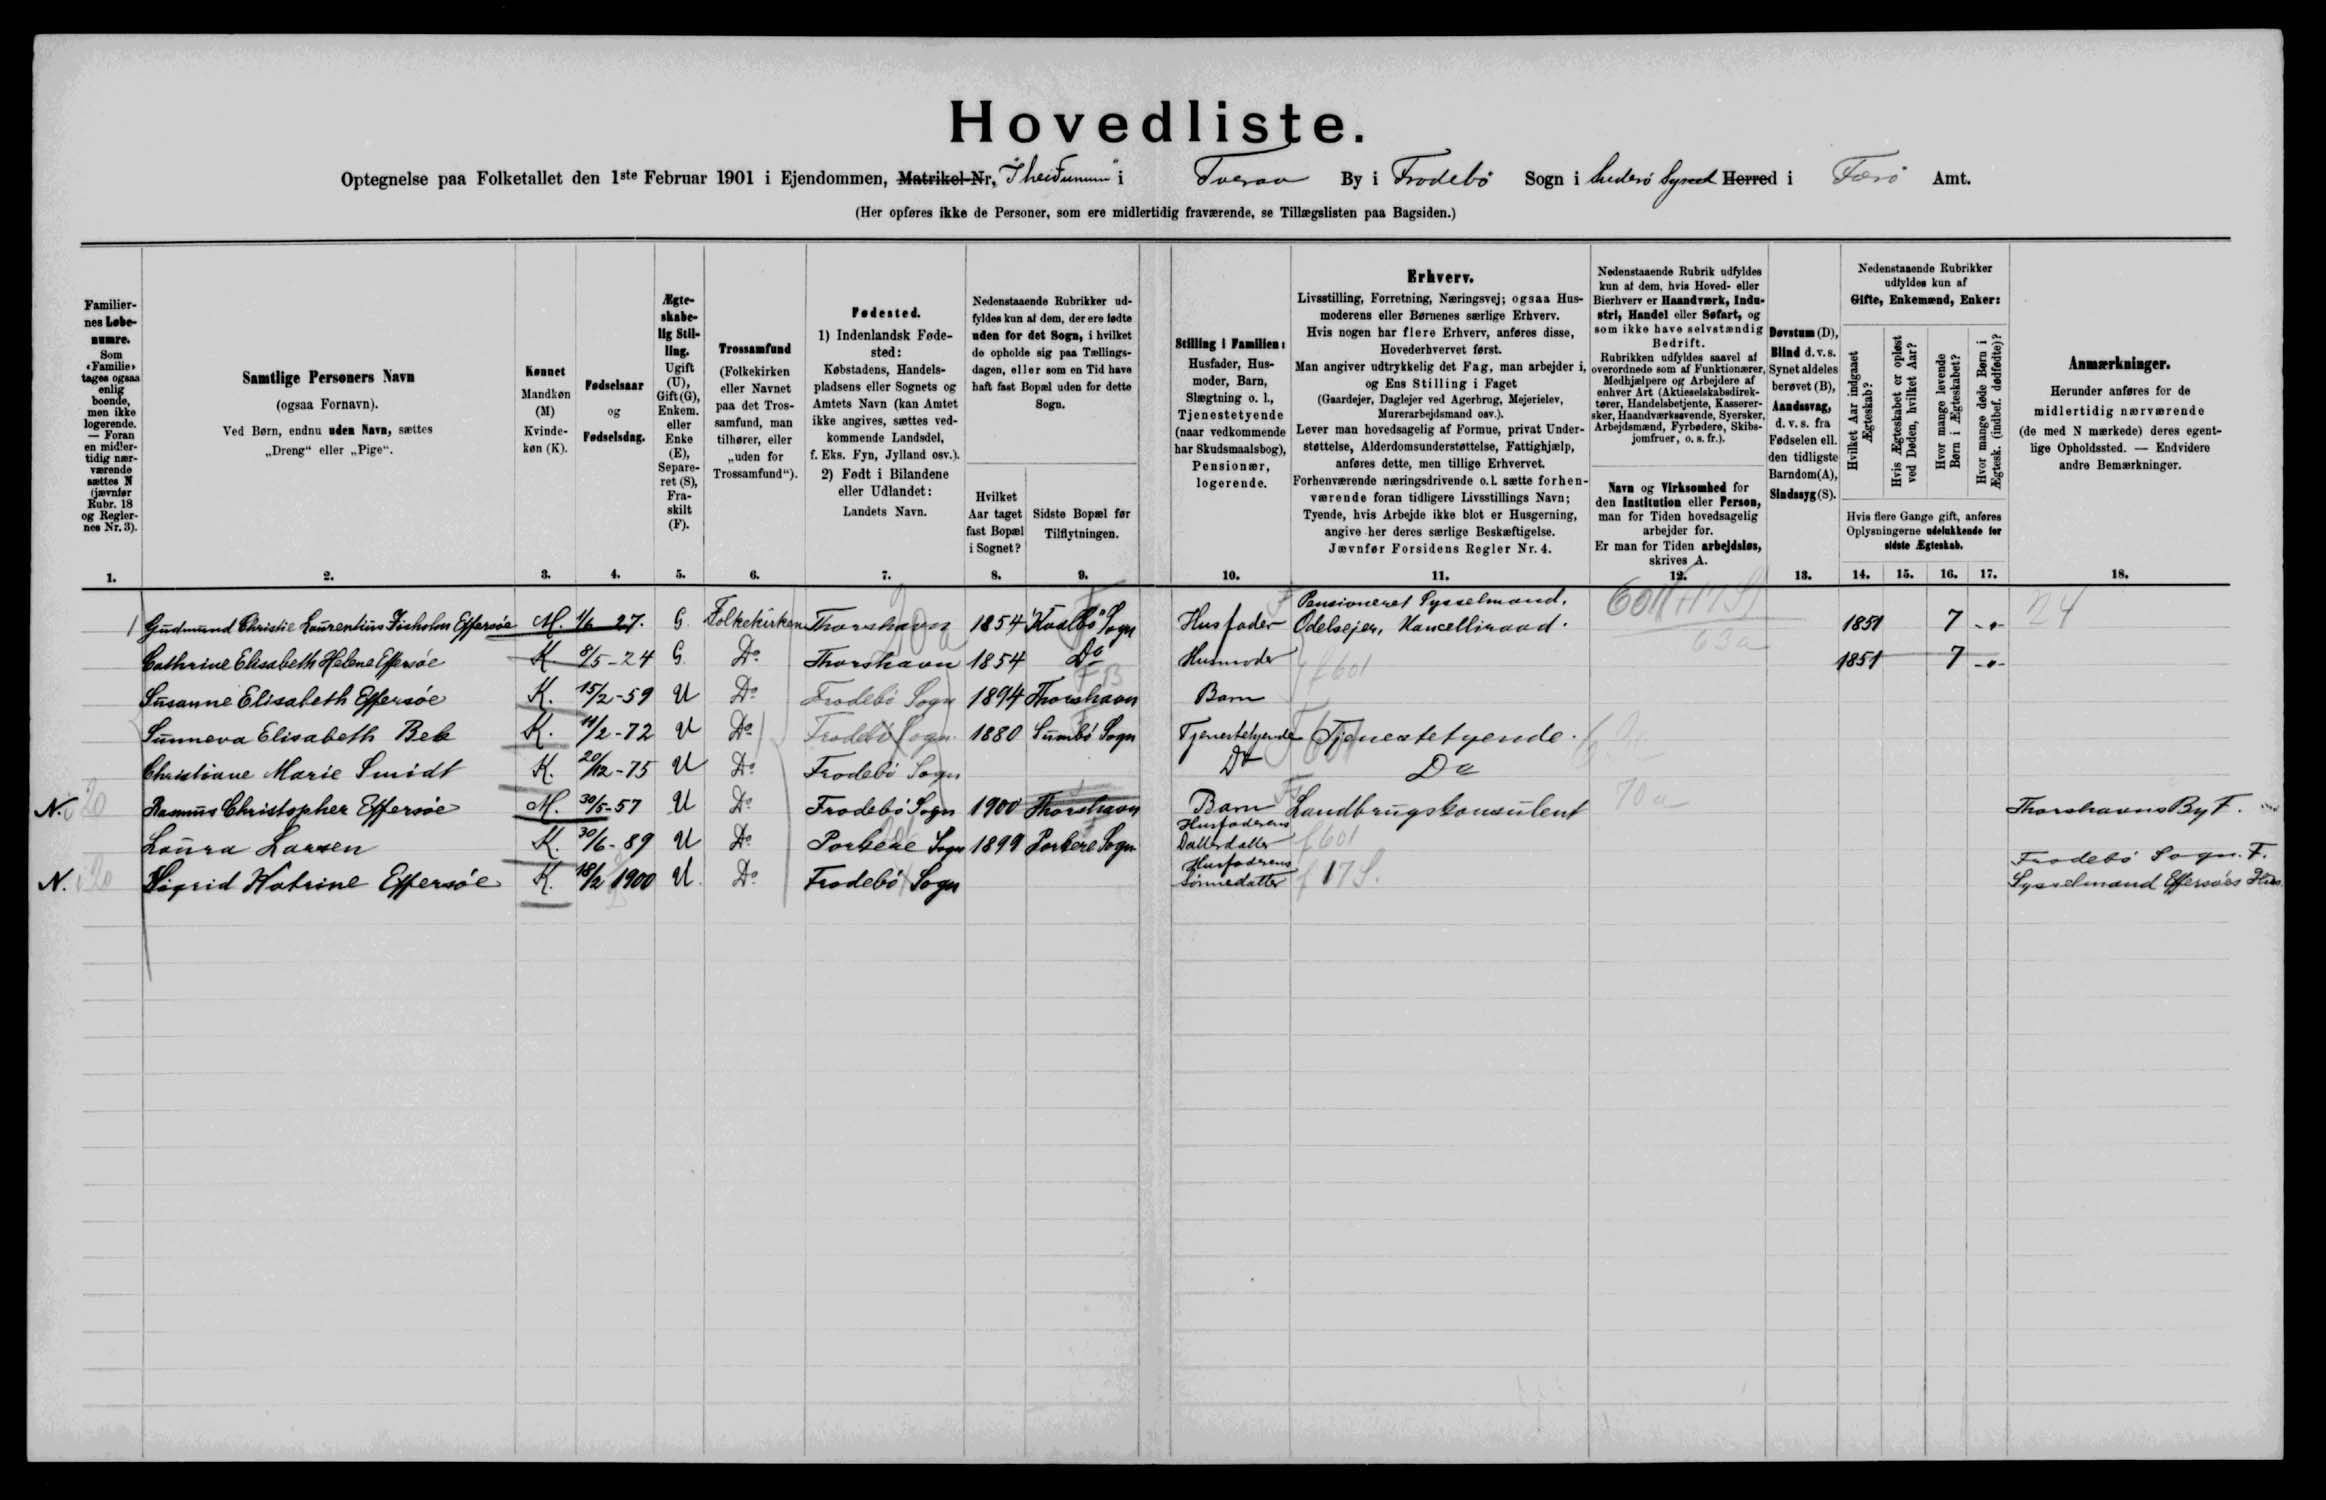 Hovedliste.
Optegnelse paa Folketallet den 1ste Februar 1901 i Ejendommen, Matrikel-Nr, "I heidunum" i Tveraa By i Frodebö Sogn i Suderö Syssel Herred i Færö Amt.
(Her opføres ikke de Personer, som ere midlertidig fraværende, se Tillægslisten paa Bagsiden.)
Familiernes Løbenumre. Som «Familie» tages ogsaa enlig boende, men ikke logerende. — Foran en midlertidig nærværende sættes N (jævnfør Rubr. 18 og Reglernes Nr. 3).
Samtlige Personers Navn
(ogsaa Fornavn).
Ved Børn, endnu uden Navn, sættes
„Dreng“ eller „Pige“.
Kønnet
Mandkøn (M)
Kvindekøn (K).
Fødselsaar
og
Fødselsdag.
Ægteskabelig Stilling. Ugift (U), Gift (G), Enkem. eller Enke (E), Separeret (S), Fraskilt (F).
Trossamfund
(Folkekirken eller Navnet paa det Trossamfund, man tilhører, eller „uden for Trossamfund“).
Fødested.
1) Indenlandsk Fødested:
Købstadens, Handelspladsens eller Sognets og Amtets Navn (kan Amtet ikke angives, sættes vedkommende Landsdel, f. Eks. Fyn, Jylland osv.).
2) Født i Bilandene eller Udlandet:
Landets Navn.
Nedenstaaende Rubrikker udfyldes kun af dem, der ere fødte uden for det Sogn, i hvilket de opholde sig paa Tællingsdagen, eller som en Tid have haft fast Bopæl uden for dette Sogn.
Hvilket Aar taget fast Bopæl i Sognet?
Sidste Bopæl før Tilflytningen.
Stilling i Familien:
Husfader, Husmoder, Barn, Slægtning o. l., Tjenestetyende (naar vedkommende har Skudsmaalsbog), Pensionær, logerende.
Erhverv.
Livsstilling, Forretning, Næringsvej; ogsaa Husmoderens eller Børnenes særlige Erhverv.
Hvis nogen har flere Erhverv, anføres disse, Hovederhvervet først.
Man angiver udtrykkelig det Fag, man arbejder i, og Ens Stilling i Faget
(Gaardejer, Daglejer ved Agerbrug, Mejerielev, Murerarbejdsmand osv.).
Lever man hovedsagelig af Formue, privat Understøttelse, Alderdomsunderstøttelse, Fattighjælp, anføres dette, men tillige Erhvervet.
Forhenværende næringsdrivende o. l. sætte forhenværende foran tidligere Livsstillings Navn; Tyende, hvis Arbejde ikke blot er Husgerning, angive her deres særlige Beskæftigelse.
Jævnfør Forsidens Regler Nr. 4.
Nedenstaaende Rubrik udfyldes kun af dem, hvis Hoved- eller Bierhverv er Haandværk, Industri, Handel eller Søfart, og som ikke have selvstændig Bedrift.
Rubrikken udfyldes saavel af overordnede som af Funktionærer, Medhjælpere og Arbejdere af enhver Art (Aktieselskabsdirektører, Handelsbetjente, Kasserersker, Haandværkssvende, Syersker, Arbejdsmænd, Fyrbødere, Skibsjomfruer, o. s. fr.).
Navn og Virksomhed for den Institution eller Person, man for Tiden hovedsagelig arbejder for.
Er man for Tiden arbejdsløs, skrives A.
Døvstum (D), Blind d. v. s. Synet aldeles berøvet (B), Aandssvag, d. v. s. fra Fødselen ell. den tidligste Barndom (A), Sindssyg (S).
Nedenstaaende Rubrikker udfyldes kun af
Gifte, Enkemænd, Enker:
Hvilket Aar indgaaet Ægteskab?
Hvis Ægteskabet er opløst ved Døden, hvilket Aar?
Hvor mange levende Børn i Ægteskabet?
Hvor mange døde Børn i Ægtesk. (indbef. dødfødte)?
Hvis flere Gange gift, anføres Oplysningerne udelukkende for sidste Ægteskab.
Anmærkninger.
Herunder anføres for de midlertidig nærværende (de med N mærkede) deres egentlige Opholdssted. — Endvidere andre Bemærkninger.
1. 2. 3. 4. 5. 6. 7. 8. 9. 10. 11. 12. 13. 14. 15. 16. 17. 18.
Pensioneret Sysselmand.
1 Gudmund Christie Laurentius Isholm Effersøe M. 1/6 27. G. Folkekirken Thorshavn 1854 Kvalbö Sogn Husfader Odelsejer, Kancelliraad. 1851 7 -"-
Cathrine Elisabeth Helene Effersøe K. 8/5-24 G. Do Thorshavn 1854 Do Husmoder 1851 7 -"-
Susanne Elisabeth Effersøe K. 15/2-59 U Do Frodebö Sogn 1894 Thorshavn Barn
Sunneva Elisabeth Bek K. 11/2-72 U Do Frodebö Sogn 1880 Sumbö Sogn Tjenestetyende Tjenestetyende.
Christiane Marie Smidt K. 20/12-75 U Do Frodebö Sogn Do Do
N. Rasmus Christopher Effersøe M. 30/5-57 U Do Frodebö Sogn 1900 Thorshavn Barn Landbrugskonsulent 70a Thorshavns By F.
Laura Larsen K. 30/6-89 U Do Porkere Sogn 1899 Porkere Sogn Husfaderens Datterdatter f 601
N. Sigrid Katrine Effersøe K. 18/2 1900 U. Do Frodebö Sogn Husfaderens Sönnedatter f 17 S. Frodebö Sogn. F.
Sysselmand Effersöes Hus